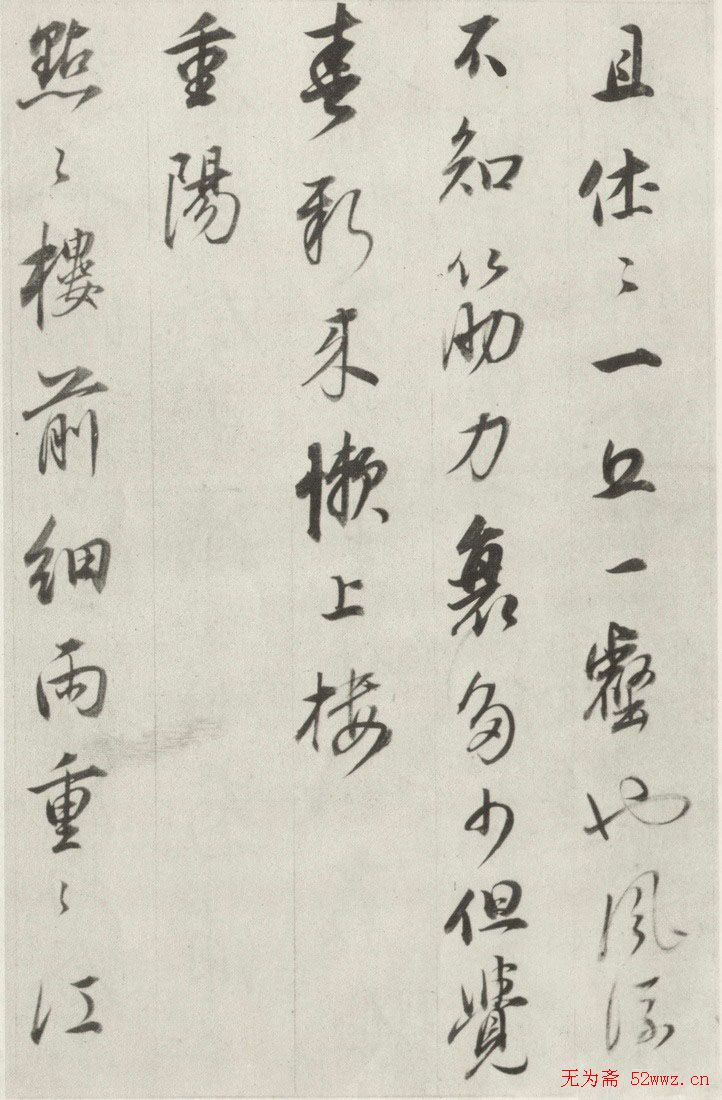 且休〻一丘一壑也風流
不知筋力衰多少但覺
春新来懶上樓
重陽
點〻樓前細雨重〻江
无为斋 52wwz.cn